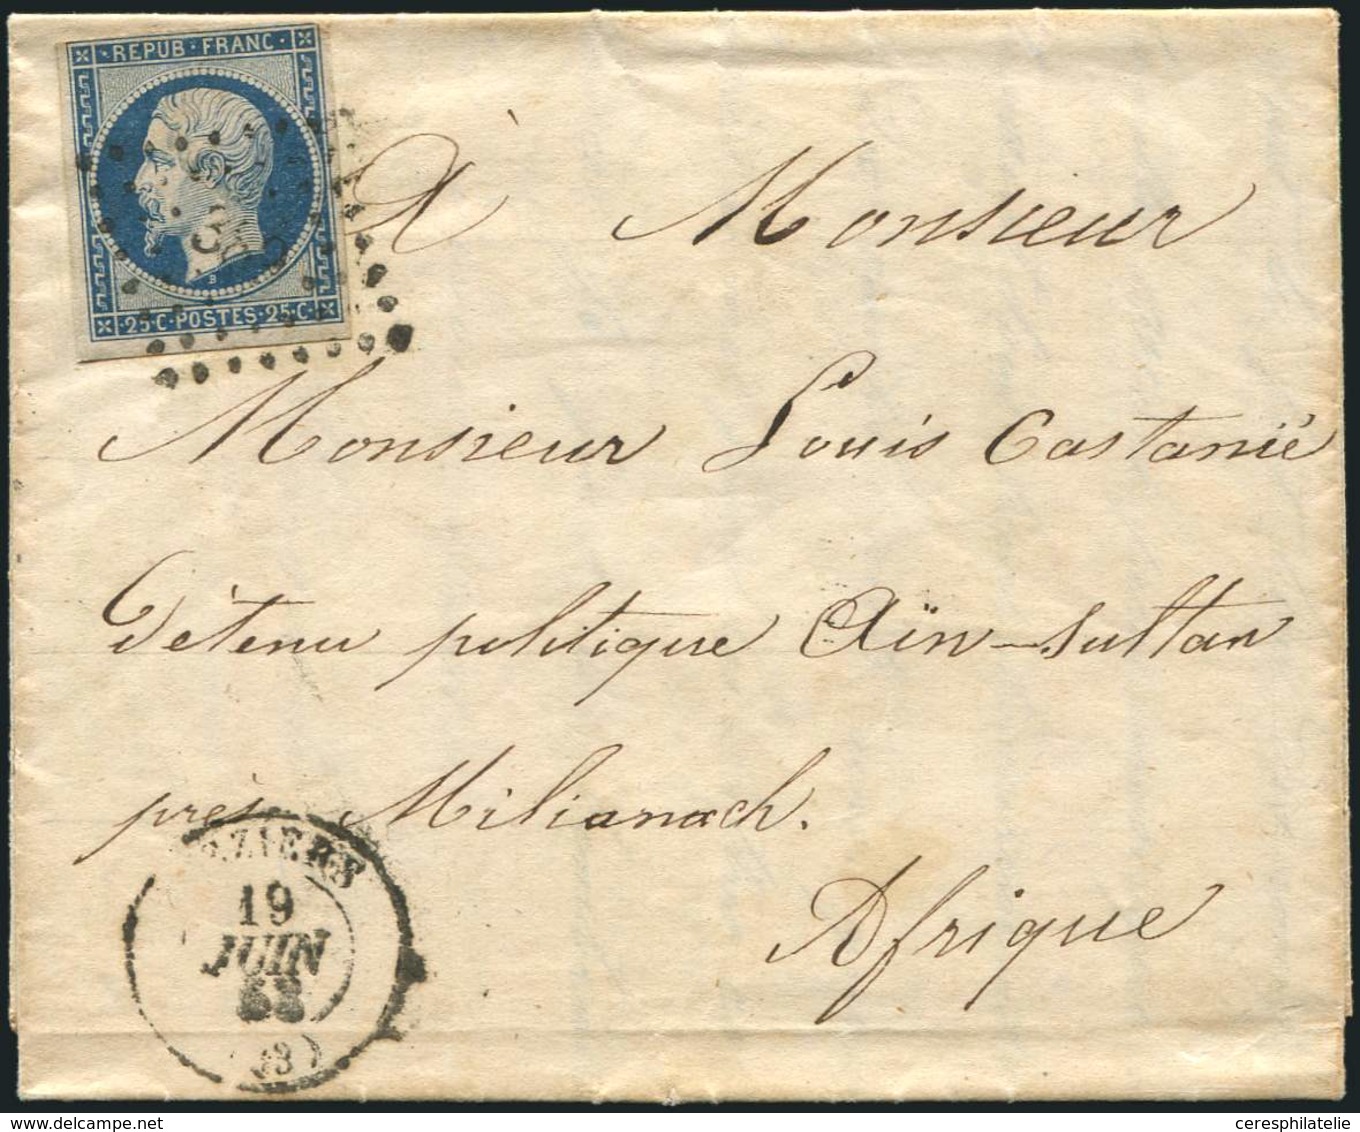 REPUB · FRANC ·
B
· 25 · C · POSTES · 25 · C ·
À Monsieur
Monsieur Louis Castanié
Détenu politique Aïn-Sultan
près Milianach.
Afrique
BEZIERS
19
JUIN
(33)
www.delcampe.net
ceresphilatelie